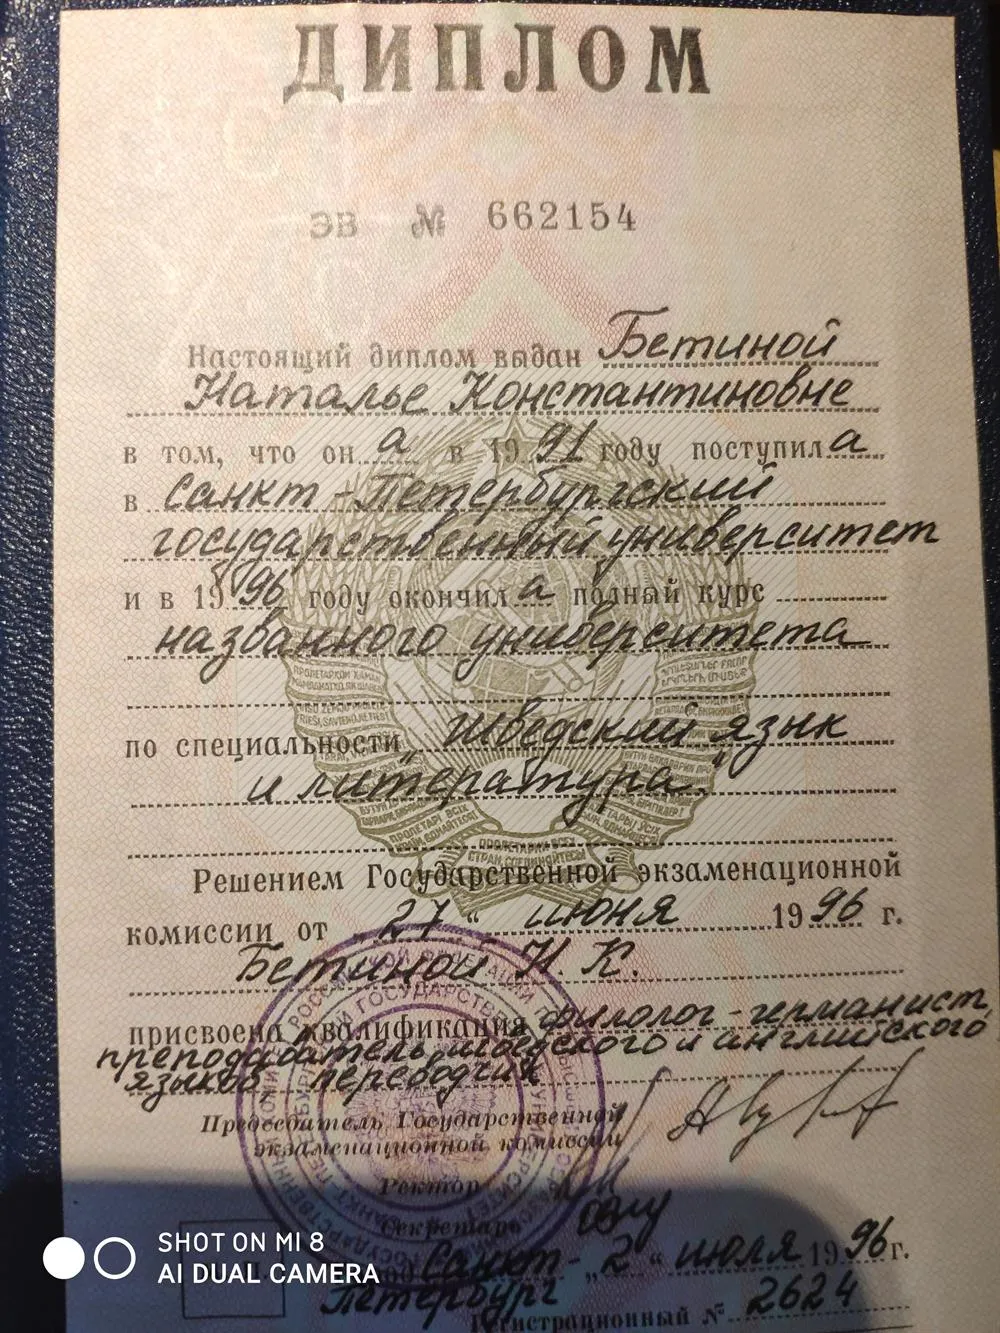 ДИПЛОМ
ЭВ № 662154
Настоящий диплом выдан Бетиной
Наталье Константиновне
в том, что он а в 1991 году поступила
в Санкт-Петербургский
государственный университет
и в 1996 году окончила полный курс
названного университета
по специальности „Шведский язык
и литература"
Решением Государственной экзаменационной
комиссии от „27" июня 1996 г.
Бетиной Н. К.
присвоена квалификация филолог-германист,
преподаватель шведского и английского
языков, переводчик
Председатель Государственной
экзаменационной комиссии
Ректор
Секретарь
Санкт- „2" июля 1996 г.
Петербург
Регистрационный № 2624
SHOT ON MI 8
AI DUAL CAMERA